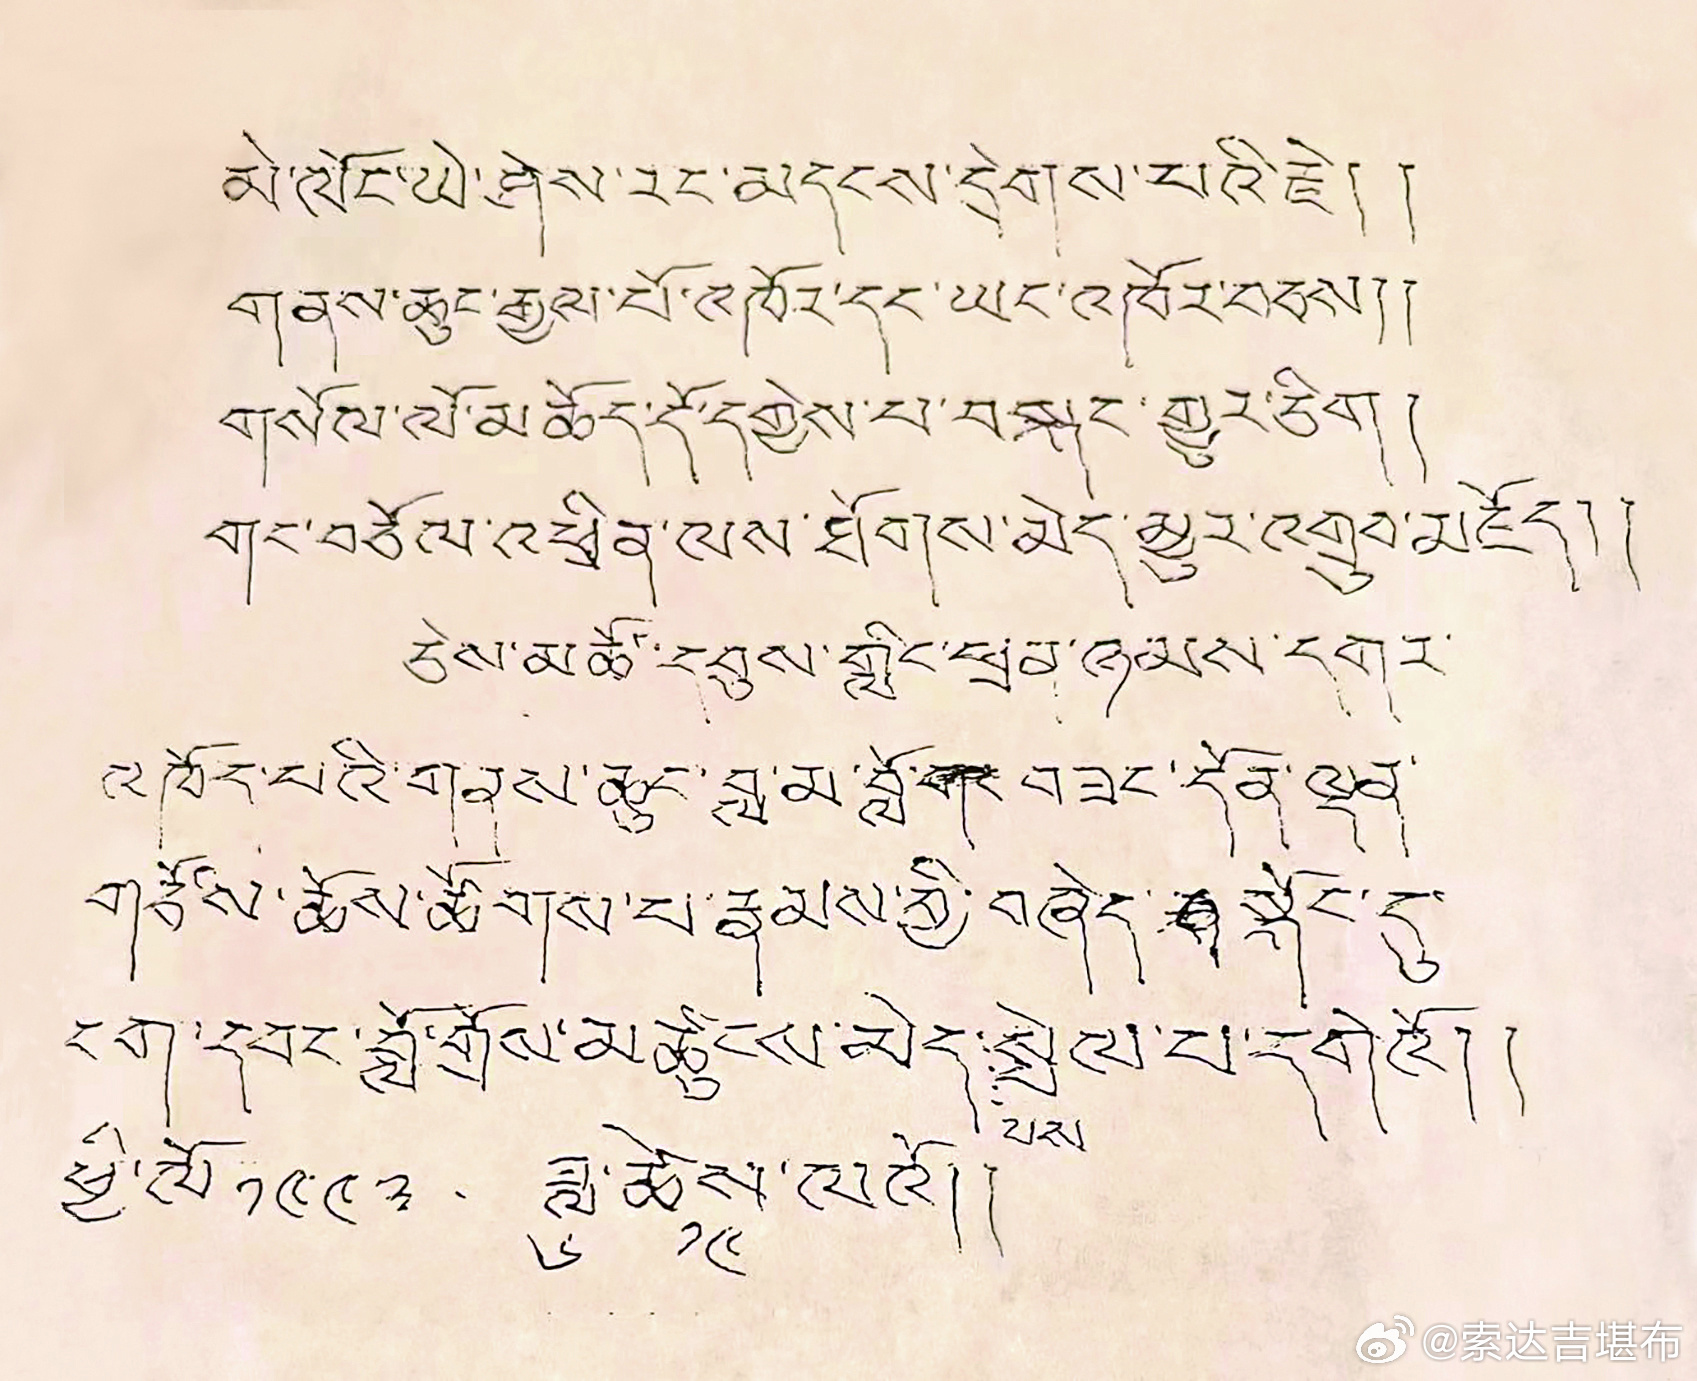 མེ་ལོང་ཡེ་ཤེས་རང་མདངས་དྲེགས་པའི་རྗེ། །
གནས་ཆུང་རྒྱལ་པོ་འཁོར་དང་ཡང་འཁོར་བཅས། །
གསོལ་ལོ་མཆོད་དོ་དགྱེས་པ་བསྐང་གྱུར་ཅིག །
གང་བཅོལ་འཕྲིན་ལས་ཐོགས་མེད་མྱུར་འགྲུབ་མཛོད། །
ཅེས་མཚོ་དབུས་གླིང་ཕྲན་ཉམས་དགར་
འཁོད་པའི་གནས་ཆུང་བླ་མ་བློ་བཟང་དོན་ལྡན་
གཙོས་ཆོས་ཚོགས་པ་རྣམས་ཀྱི་བཞེད་སྐོང་དུ
ངག་དབང་བློ་གྲོས་མཚུངས་མེད་སྤྲེལ་པ་དགེའོ། །
པས
ཕྱི་ལོ ༡༩༩༣ . ཟླ་ཚེས་ལའོ། །
༦ ༡༩
@索达吉堪布